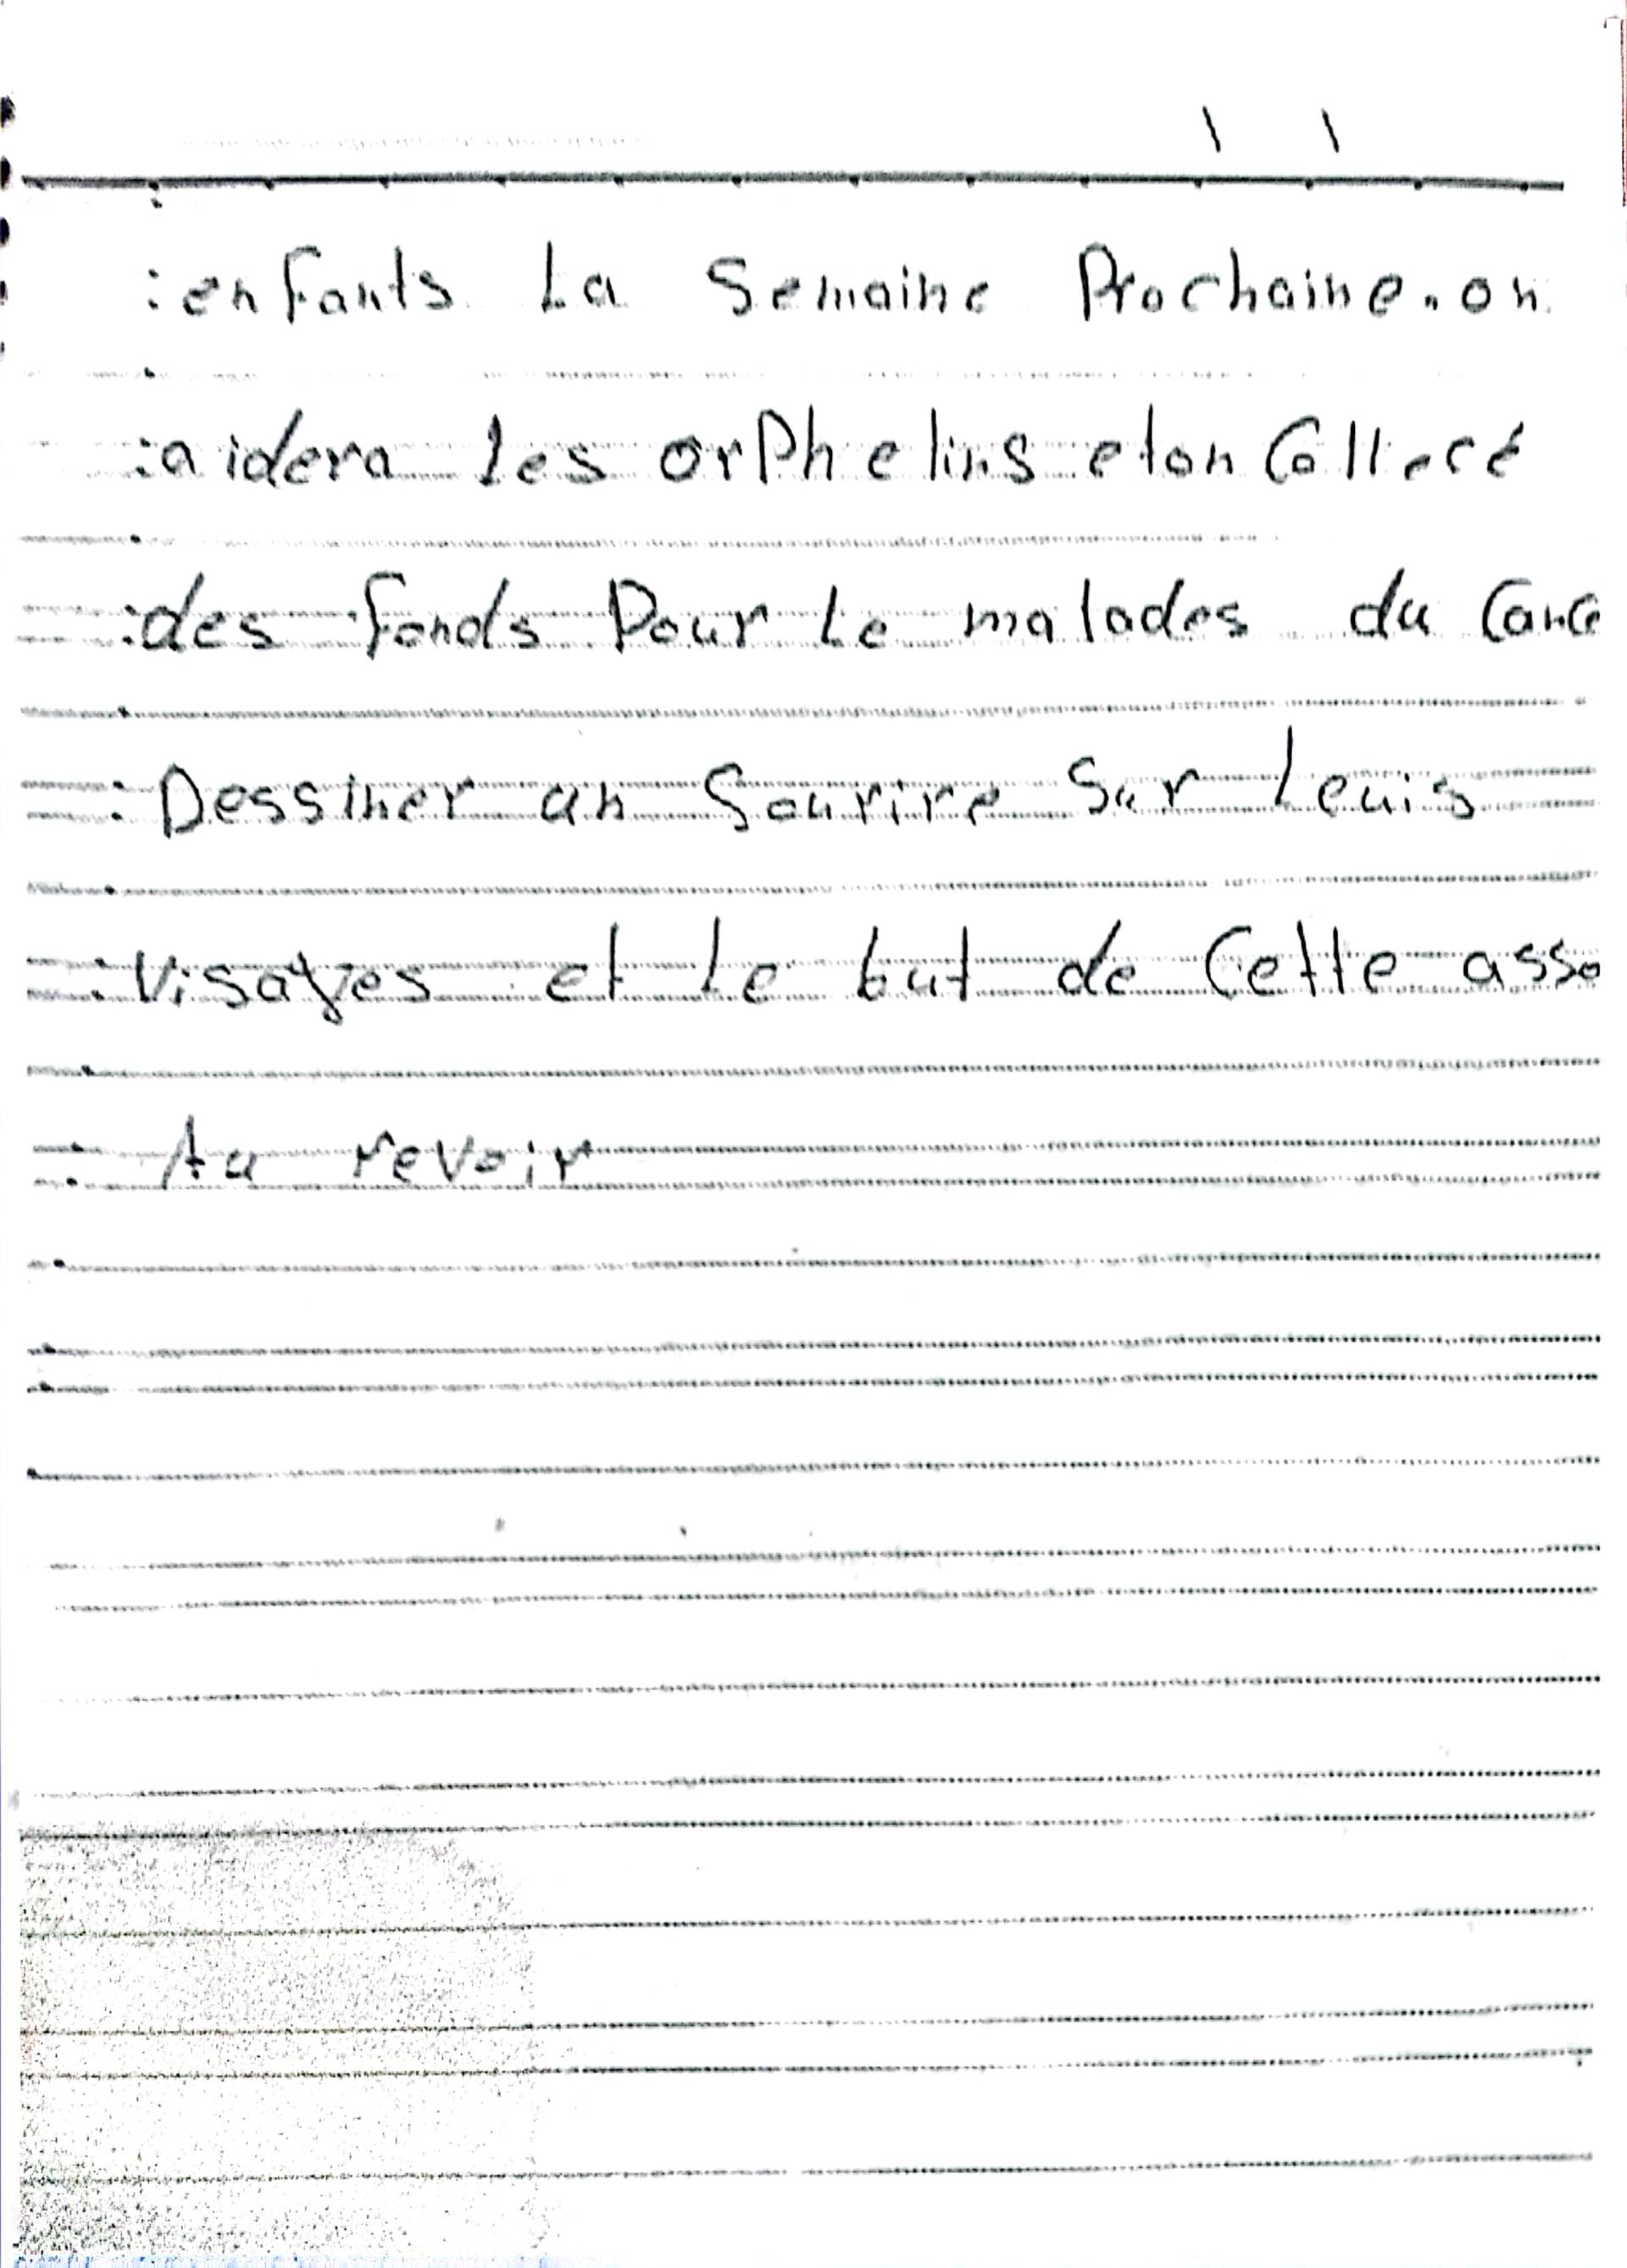 enfants La Semaine Prochaine. on
aidera les orphelins et on Collecé
des fonds Pour Le malades du Canc
Dessiner un Sourire Sur Leuis
Visages et Le but de Cette asso
Au revoir